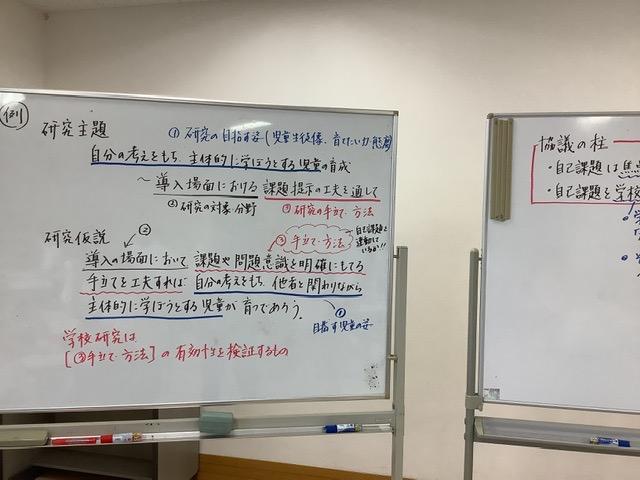 例
研究主題
① 研究の目指す姿(児童生徒像、育てたい力、態度)
自分の考えをもち、主体的に学ぼうとする児童の育成
～導入場面における課題提示の工夫を通して
②研究の対象・分野
③研究の手立て・方法
研究仮説
②
③ 手立て・方法
自己課題と
連動して
いるか!!
導入の場面において課題や問題意識を明確にもてる
手立てを工夫すれば、自分の考えをもち、他者と関わりながら
主体的に学ぼうとする児童が育つであろう。
①
目指す児童の姿
学校研究は
[③手立て・方法]の有効性を検証するもの
協議の柱
・自己課題は
・自己課題を学校